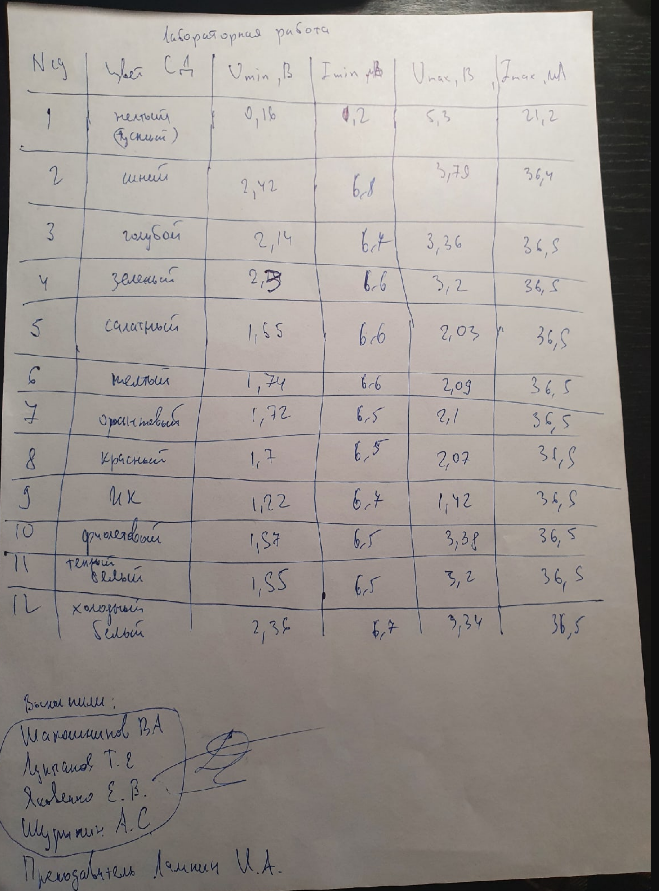 Лабораторная работа
N сд Цвет СД Umin, В Imin, мА Umax, В Imax, мА
1 желтый 0,18 0,2 5,3 21,2
(тусклый)
2 синий 2,42 6,8 3,79 36,4
3 голубой 2,14 6,7 3,36 36,5
4 зеленый 6.6 3,2 36,5
5 салатный 1,65 6.6 2,03 36,5
6 желтый 1,74 6.6 2,09 36,5
7 оранжевый 1,72 6,5 2,1 36,5
8 красный 1,7 6,5 2,07
9 ИК 1,22 6,7 1,42 36,5
10 фиолетовый 1,57 6.5 3,38 36,5
11 теплый
белый 1,55 6,5 3,2 36,5
12 холодный
белый 2,36 6,7 3,34 36,5
Выполнили:
В.А
Т. Е
Яковенко Е. В.
А. С
Преподаватель Лампин И. А.